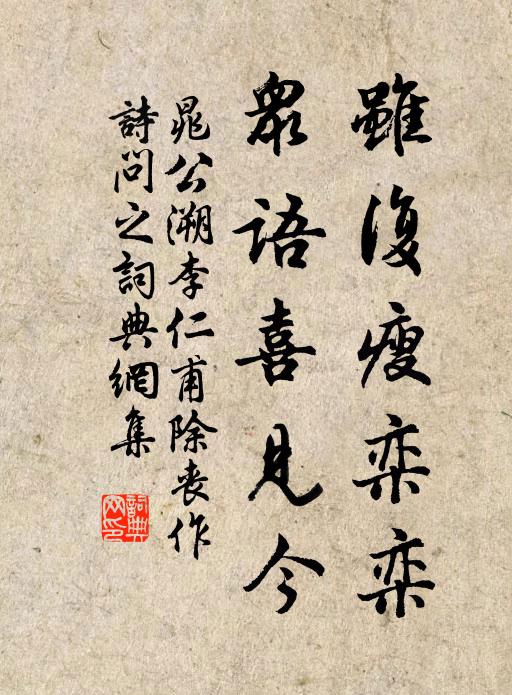 雖復瘦栾栾
眾語喜見今
晁公溯李仁甫除丧作
詩问之詞典網集
詞典网印